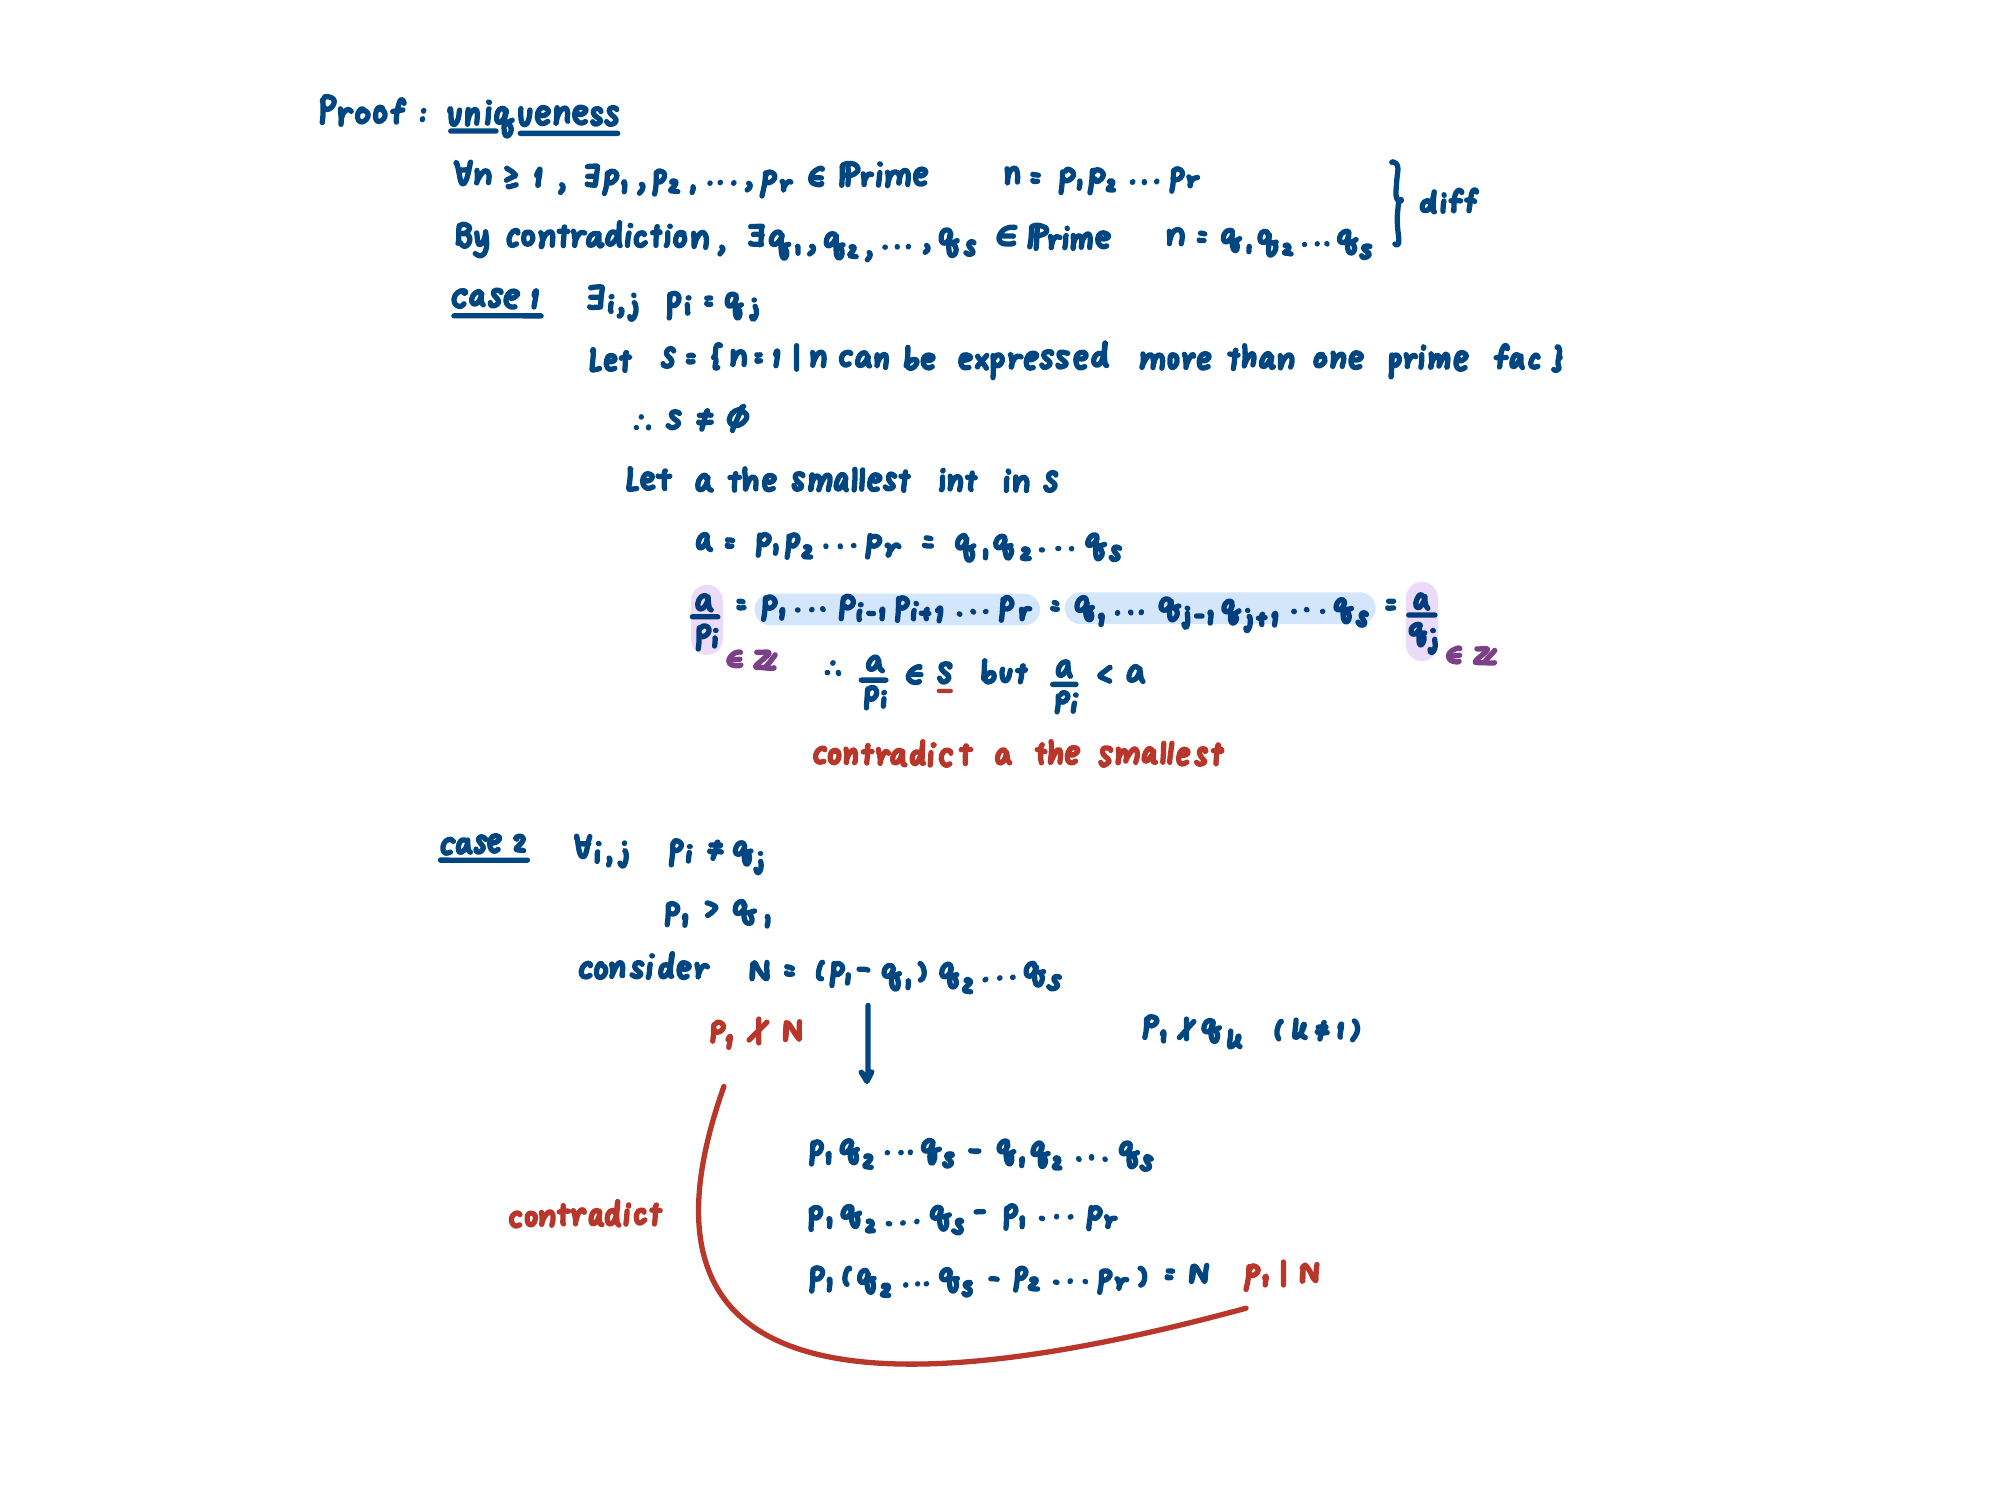 Proof : uniqueness
∀n ≥ 1 , ∃p₁,p₂,...,pᵣ ∈ ℙrime n = p₁p₂ ... pᵣ
} diff
By contradiction, ∃q₁,q₂,...,qₛ ∈ ℙrime n = q₁q₂ ... qₛ
case 1 ∃i,j pᵢ = qⱼ
Let S = { n = 1 | n can be expressed more than one prime fac }
∴ S ≠ ∅
Let a the smallest int in S
a = p₁p₂ ... pᵣ = q₁q₂ ... qₛ
a/pᵢ = p₁ ... pᵢ₋₁ pᵢ₊₁ ... pᵣ = q₁ ... qⱼ₋₁ qⱼ₊₁ ... qₛ = a/qⱼ
∈ ℤ ∈ ℤ
∴ a/pᵢ ∈ S but a/pᵢ < a
contradict a the smallest
case 2 ∀i,j pᵢ ≠ qⱼ
p₁ > q₁
consider N = (p₁ - q₁) q₂ ... qₛ
p₁ ∤ N p₁ ∤ qₖ (k ≠ 1)
p₁q₂ ... qₛ - q₁q₂ ... qₛ
p₁q₂ ... qₛ - p₁ ... pᵣ
contradict
p₁(q₂ ... qₛ - p₂ ... pᵣ) = N p₁ | N